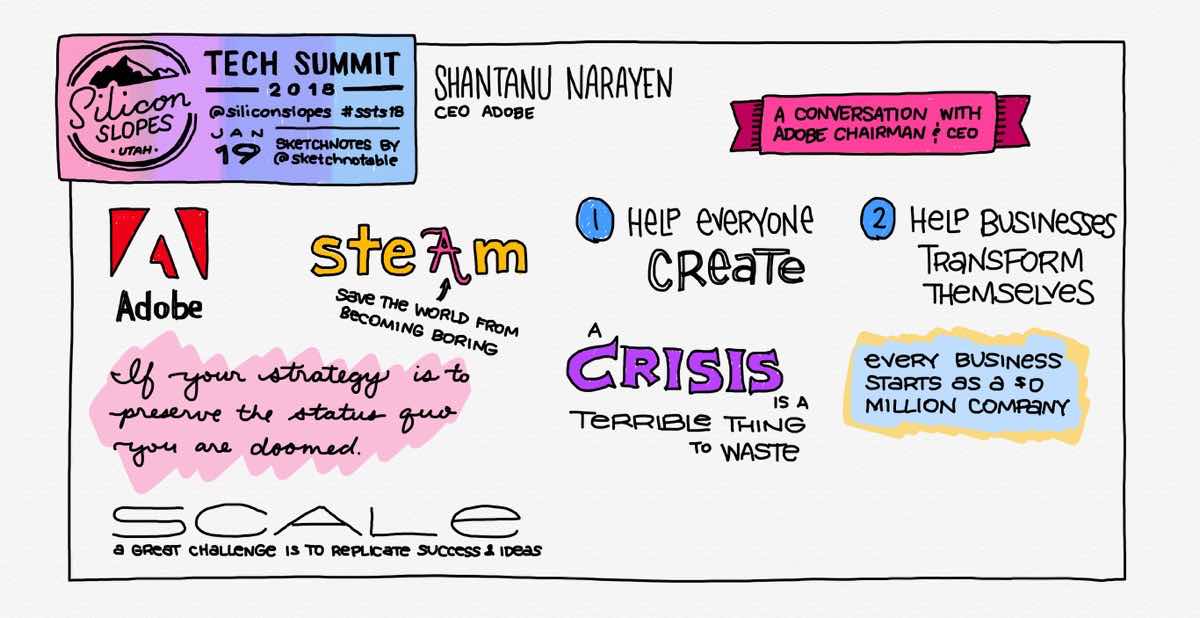 Silicon
SLOPES
• UTAH •
TECH SUMMIT
2018
@siliconslopes #ssts18
JAN
19
SKETCHNOTES BY
@sketchnotable
SHANTANU NARAYEN
CEO ADOBE
A CONVERSATION WITH
ADOBE CHAIRMAN & CEO
Adobe
steAm
SAVE THE WORLD FROM
BECOMING BORING
1 HELP EVERYONE
CREATE
2 HELP BUSINESSES
TRANSFORM
THEMSELVES
If your strategy is to
preserve the status quo
you are doomed.
A
CRISIS
IS A
TERRIBLE THING
TO WASTE
EVERY BUSINESS
STARTS AS A $0
MILLION COMPANY
SCALE
A GREAT CHALLENGE IS TO REPLICATE SUCCESS & IDEAS